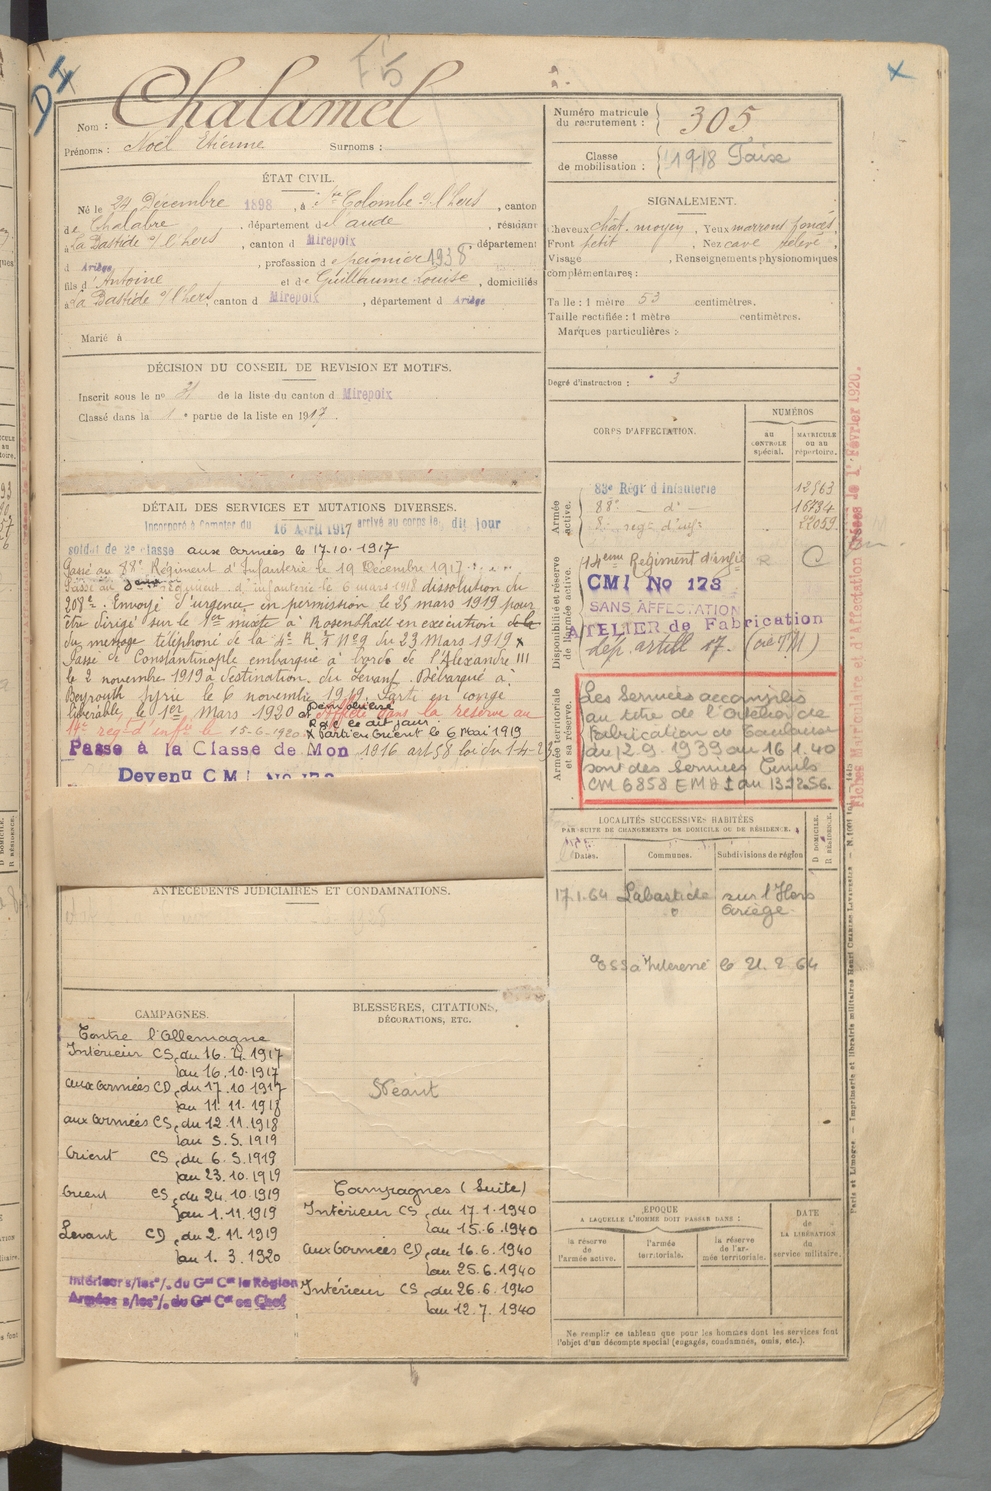 D I
F 5
Chalamel
Nom :
Prénoms : Noël Etienne Surnoms :
ÉTAT CIVIL.
Né le 24 Décembre 1898, à Ste Colombe s/l'Hers, canton
de Chalabre, département de l'aude, résidant
à La Bastide s/l'Hers, canton d Mirepoix, département
d Ariège, profession de peignier 1938
fils d'Antoine et de Guillaume Louise, domiciliés
à La Bastide s/l'Hers, canton d Mirepoix, département d Ariège
Marié à
DÉCISION DU CONSEIL DE REVISION ET MOTIFS.
Inscrit sous le no 21 de la liste du canton d Mirepoix
Classé dans la 1 e partie de la liste en 1917.
DÉTAIL DES SERVICES ET MUTATIONS DIVERSES.
Incorporé à Compter du 16 Avril 1917 arrivé au corps le dit jour
soldat de 2e classe aux armées le 17.10.1917
Passé au 88e Régiment d'Infanterie le 19 Décembre 1917
Passé au Régiment d'infanterie le 6 mars 1918 dissolution du
208e. Envoyé d'urgence en permission le 25 mars 1919 pour
être dirigé sur le 1er mixte à Rosendhaël en exécution de la
du message téléphoné de la 4e R. I no 9 du 23 Mars 1919 x
Passé de Constantinople embarqué à bord de l'Alexandre III
le 2 novembre 1919 à destination du Levant. Débarqué à
Beyrouth Syrie le 6 novembre 1919. Parti en congé
libérable le 1er Mars 1920 et Affecté dans la réserve au
Démobilisé
R.D.C. le dit jour.
14e régt d'infie le 15-6-1920 x parti en Orient le 6 Mai 1919
Passe à la Classe de Mon 1916 art 58 loi du 1-4-23
Devenu CMI No 173
ANTÉCÉDENTS JUDICIAIRES ET CONDAMNATIONS.
CAMPAGNES.
Contre l'Allemagne
Intérieur CS du 16.4.1917
au 16.10.1917
aux Armées CD du 17.10.1917
au 11.11.1918
aux Armées CS du 12.11.1918
au 5.5.1919
Orient CS du 6.5.1919
au 23.10.1919
Orient CS du 24.10.1919
au 1.11.1919
Levant CD du 2.11.1919
au 1.3.1920
Intérieur s/les o/. du Gal Ct la Région
Armées s/les o/. du Gal Ct en Chef
BLESSURES, CITATIONS,
DÉCORATIONS, ETC.
Néant
Campagnes (Suite)
Intérieur CS du 17.1.1940
au 15.6.1940
aux Armées CD du 16.6.1940
au 25.6.1940
Intérieur CS du 26.6.1940
au 12.7.1940
Numéro matricule du recrutement : 305
Classe de mobilisation : 1918
SIGNALEMENT.
Cheveux chât. moyen, Yeux marrons foncés,
Front petit, Nez cave relevé,
Visage , Renseignements physionomiques
complémentaires :
Taille : 1 mètre 53 centimètres.
Taille rectifiée : 1 mètre centimètres.
Marques particulières :
Degré d'instruction : 3
CORPS D'AFFECTATION.
NUMÉROS
au CONTROLE spécial.
MATRICULE ou au répertoire.
Armée active.
83e Régt d Infanterie 12863
88e — d° — 16794
22059
Disponibilité et réserve de l'armée active.
14eme Régiment d'infie R C
CMI No 173
SANS AFFECTATION
ATELIER de Fabrication
dép. artill 17.
Armée territoriale et sa réserve.
Les Services accomplis
au titre de l'Atelier de
Fabrication de Toulouse
du 2.9.1939 au 16.1.40
sont des Services Civils
CM 6858 EMA1 du 13.12.56.
LOCALITÉS SUCCESSIVES HABITÉES
PAR SUITE DE CHANGEMENTS DE DOMICILE OU DE RÉSIDENCE.
Dates. Communes. Subdivisions de région D DOMICILE. R RÉSIDENCE.
17.1.64 Labastide sur l'Hers
Ariège
le 21.2.64
ÉPOQUE
A LAQUELLE L'HOMME DOIT PASSER DANS :
la réserve de l'armée active.
l'armée territoriale.
la réserve de l'armée territoriale.
DATE de LA LIBÉRATION du service militaire.
Ne remplir ce tableau que pour les hommes dont les services font
l'objet d'un décompte spécial (engagés, condamnés, omis, etc.).
Fiches Matriculaire et d'Affectation Créées le 1er Février 1920.
Paris et Limoges. — Imprimerie et librairie militaires Henri CHARLES-LAVAUZELLE.